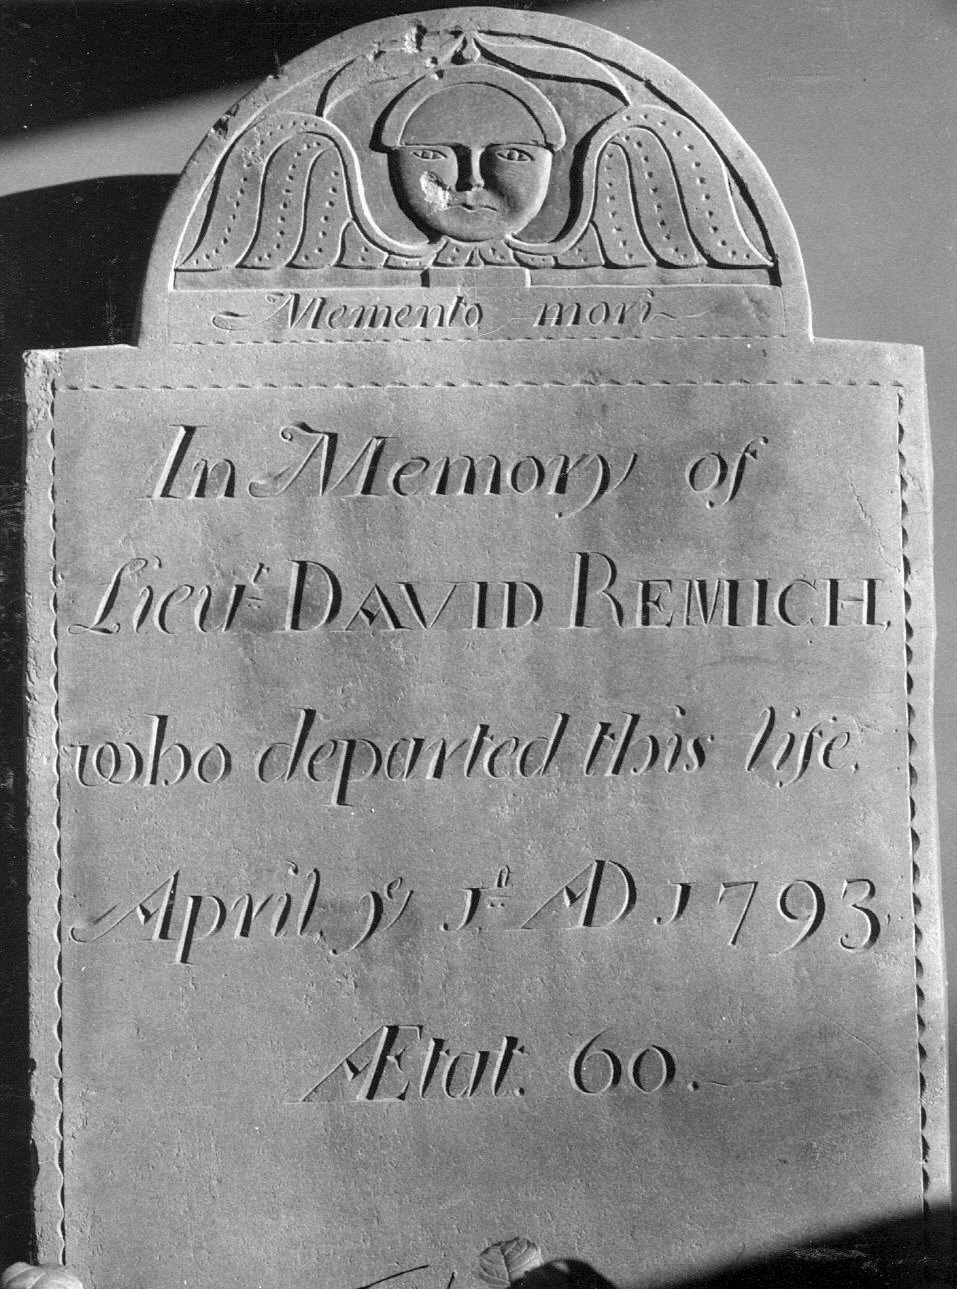 Memento mori
In Memory of
Lieuᵗ DAVID REMICH,
who departed this life,
April, yᵉ 1ᵗ AD 1793
Ætat. 60.